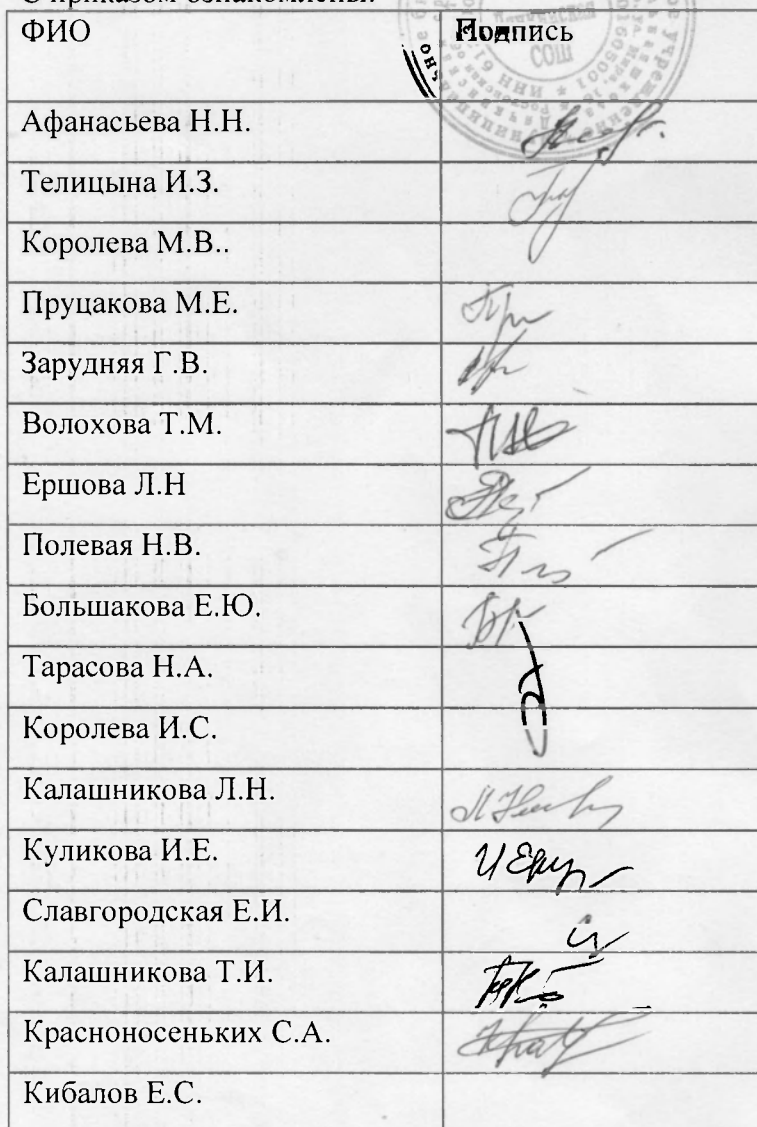 С приказом ознакомлены:
ФИО Подпись
Афанасьева Н.Н.
Телицына И.З.
Королева М.В..
Пруцакова М.Е.
Зарудняя Г.В.
Волохова Т.М.
Ершова Л.Н
Полевая Н.В.
Большакова Е.Ю.
Тарасова Н.А.
Королева И.С.
Калашникова Л.Н.
Куликова И.Е.
Славгородская Е.И.
Калашникова Т.И.
Красноносеньких С.А.
Кибалов Е.С.
СОШ